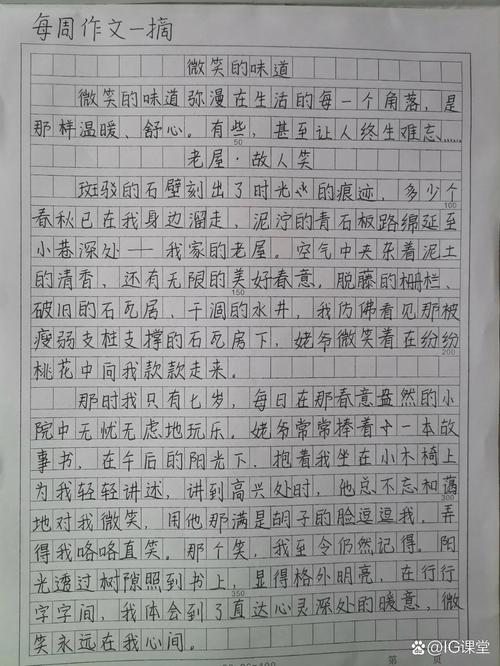 每周作文一摘
微笑的味道
微笑的味道弥漫在生活的每一个角落，是
那样温暖、舒心。有些，甚至让人终生难忘……
50
老屋·故人笑
斑驳的石壁刻出了时光的痕迹，多少个
100
春秋已在我身边溜走，泥泞的青石板路绵延至
小巷深处——我家的老屋。空气中夹杂着泥土
的清香，还有无限的美好春意，脱藤的栅栏、
150
破旧的石瓦居、干涸的水井，我仿佛看见那被
瘦弱支桩支撑的石瓦房下，姥爷微笑着在纷纷
200
桃花中向我款款走来。
那时我只有七岁，每日在那春意盎然的小
院中无忧无虑地玩乐。姥爷常常捧着一本故
事书，在午后的阳光下，抱着我坐在小木椅上
为我轻轻讲述，讲到高兴处时，他总不忘和蔼
300
地对我微笑，用他那满是胡子的脸逗逗我，弄
得我咯咯直笑。那个笑，我至今仍然记得。阳
光透过树隙照到书上，显得格外明亮，在行行
350
字字间，我体会到了直达心灵深处的暖意，微
笑永远在我心间。
第 页
@IG课堂